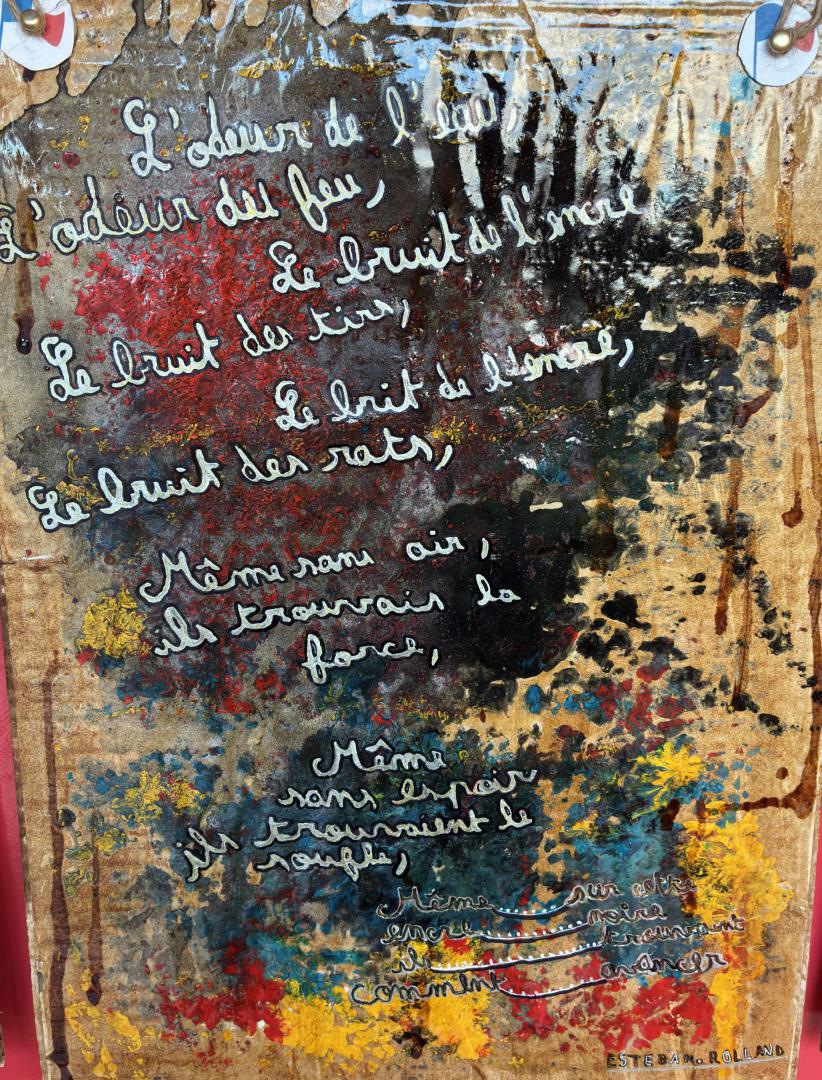 L'odeur de l'eau,
L'odeur du feu,
Le bruit de l'encre
Le bruit des tirs,
Le brit de l'encre,
Le bruit des rats,
Même sans air,
ils trouvais la
force,
Même
sans espoir
ils trouvaient le
soufle,
Même sur cette
encre noire
ils trouvaient
comment avancer
ESTEBAN. ROLLAND